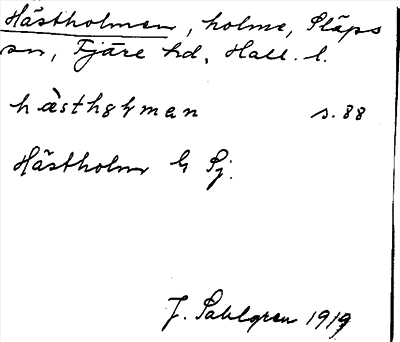 Hästholmen, holme, Släps
sn, Fjäre hd, Hall. l.
hàsthɡɥman s. 88
Hästholm
J. Sahlgren 1919